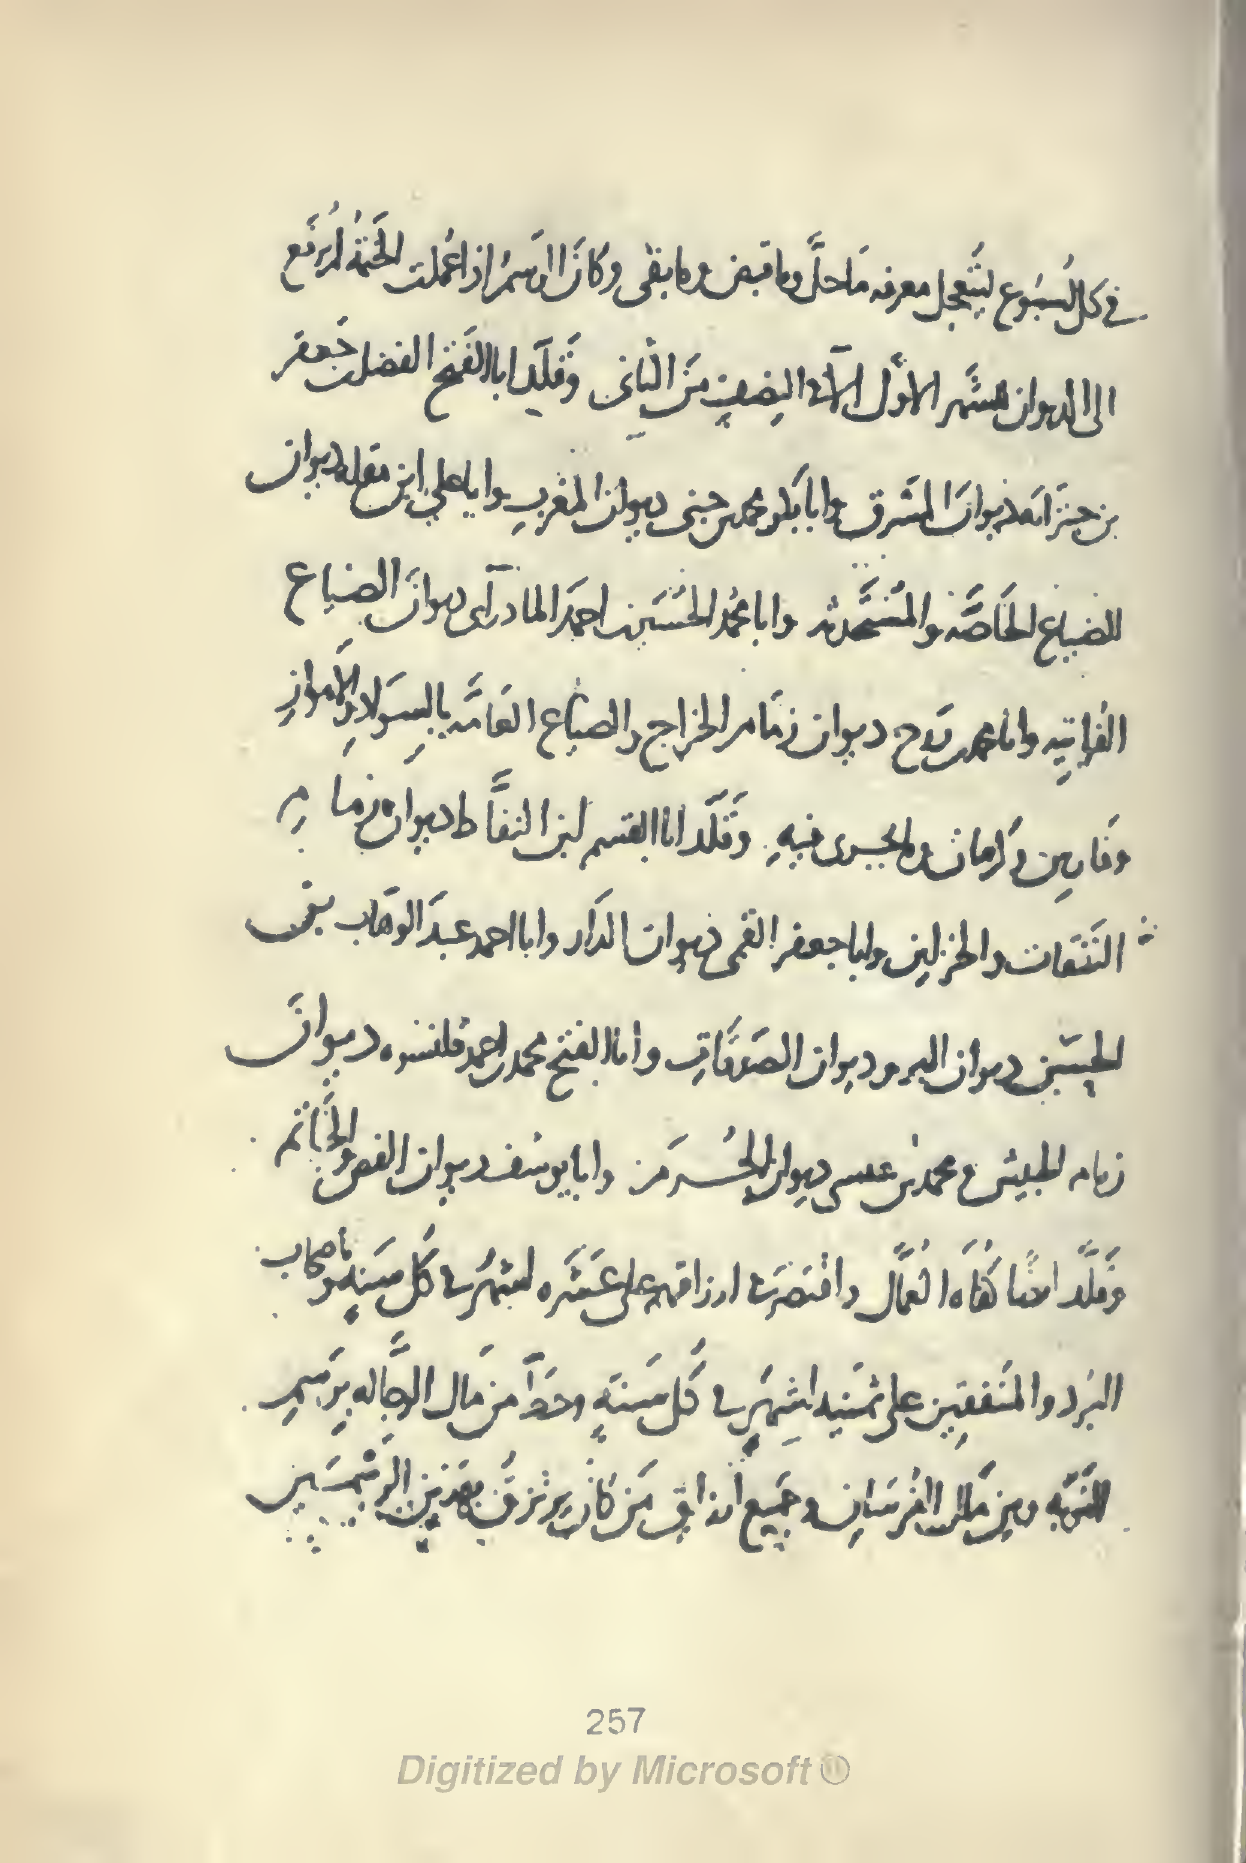 في كل اسبوع ليتعجل معرفه ما حل وما قبض وما بقى وكان الرسم اذا عملت الختمة ان ترفع
الى الديوان للشهر الاول الا في النصف من الثاني وقلد ابا الفتح الفضل بن جعفر
بن حنزابه ديوان المشرق وابا بكر محمد بن جنى ديوان المغرب وابا علي ابن مقله ديوان
الضياع الخاصه والمستحدثه وابا محمد الحسين بن احمد المادرآى ديوان الضياع
الفراتيه وابا محمد بن روح ديوان زمام الخراج والضياع العامه بالسواد والاهواز
وفارس وكرمان وما يجرى فيه وقلد ابا القسم ابن النفاط ديوان زمام
النفقات والخزاين وابا جعفر القمى ديوان الدار وابا احمد عبد الوهاب بن
الحسن ديوان البر وديوان الصدقات وابا الفتح محمد بن احمد قلنسوه ديوان
زمام الجيش ومحمد بن عيسى ديوان الحرم وابا يوسف ديوان الفص والخاتم
وقلد ايضا كفاه العمال واقتصر في ارزاقهم على عشره اشهر في كل سنه وباصحاب
البرد والمنفقين على ثمنيه اشهر في كل سنه وحط من مال الرجاله برسم
النوبه ومن مال الفرسان وجميع ارزاق من كان يرتزق بهذين الرسمين
257
Digitized by Microsoft ®